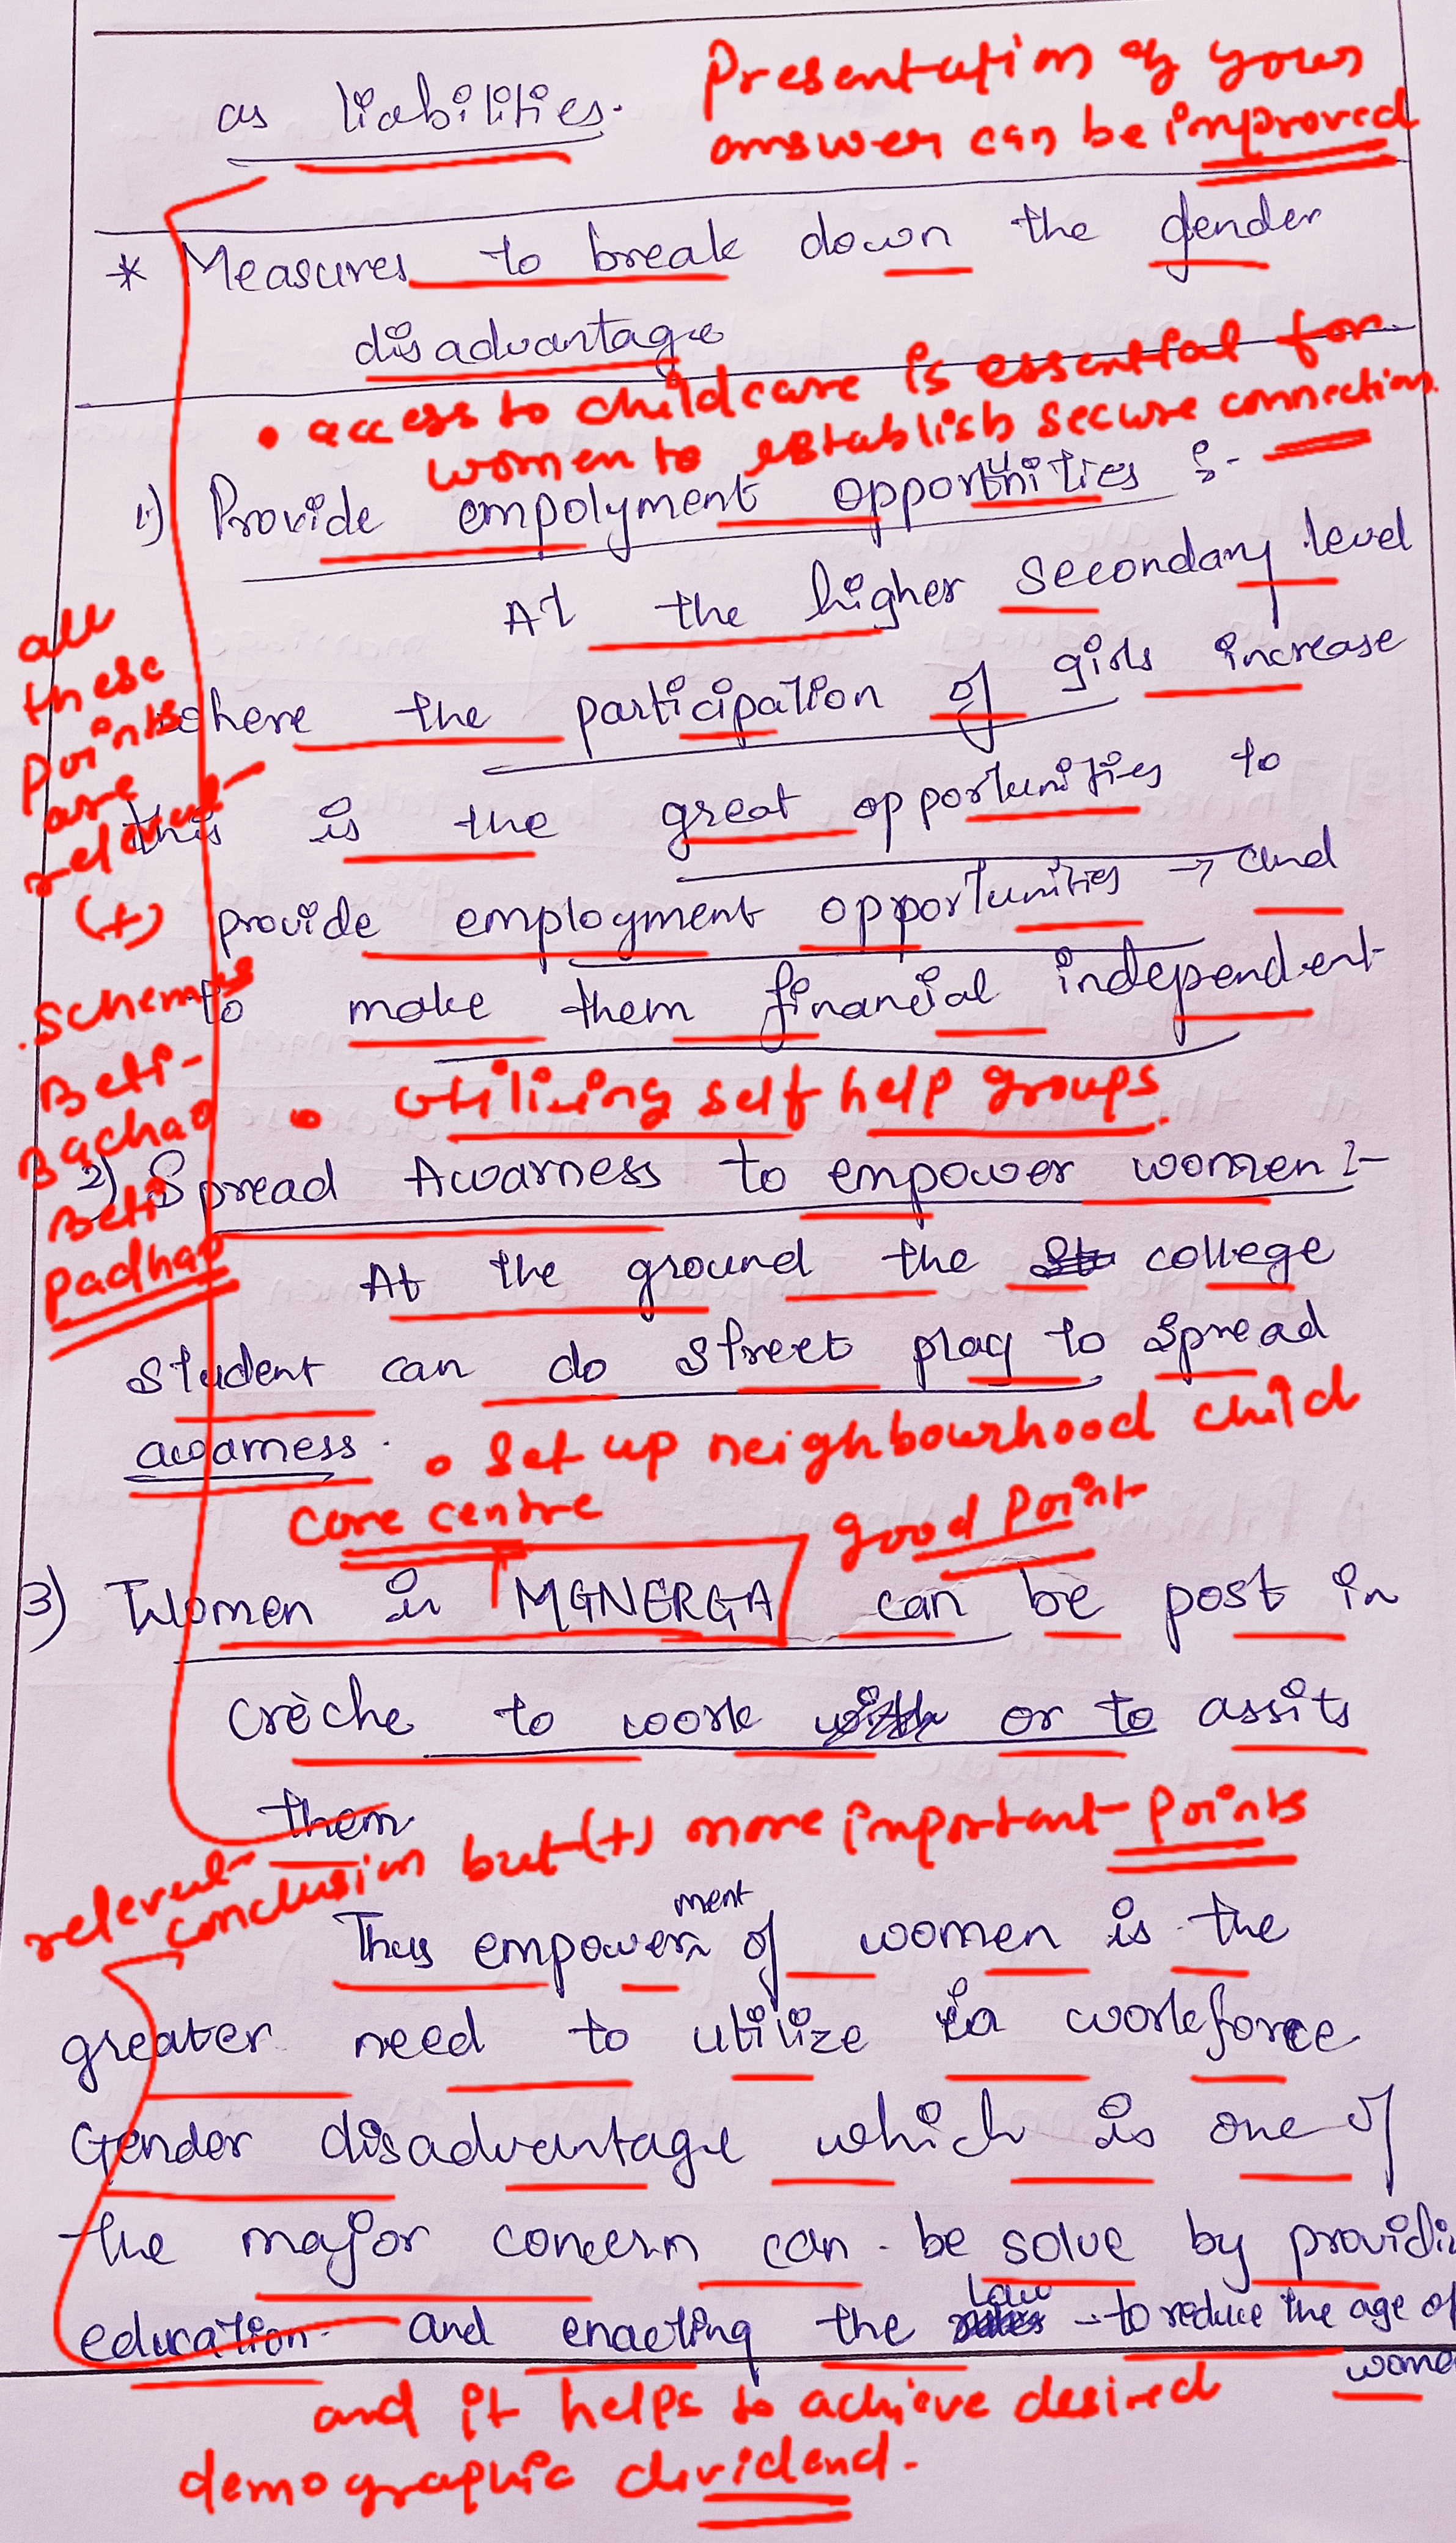 as liabilities.
Presentation of your
answer can be improved
* Measures to break down the gender
disadvantage
• access to childcare is essential for
women to establish secure connection.
1) Provide empolyment opportunities :-
At the higher secondary level
where the participation of girls increase
this is the great opportunities to
provide employment opportunities → and
to make them financial independent
all
these
points
are
relevent
(+)
. Schemes
Beti-
Bachao
Beti
padhao
• Utilizing self help groups.
2) Spread Awarness to empower women :-
At the ground the college
student can do street play to spread
awarness.
• Set up neighbourhood child
care centre
good point
3) Women in MGNERGA can be post in
crèche to work or to assits
them
relevent
conclusion but (+) more important points
Thus empowerment of women is the
greater need to utilize in workforce
Gender disadvantage which is one of
the major concern can be solve by providi
education and enacting the Law to reduce the age of
and it helps to achieve desired
demographic dividend.